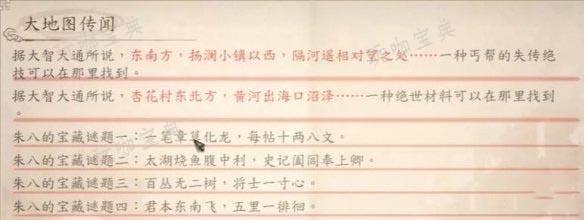 大地图传闻
据大智大通所说，东南方，扬澜小镇以西，隔河遥相对望之处……一种丐帮的失传绝
技可以在那里找到。
据大智大通所说，杏花村东北方，黄河出海口沼泽……一种绝世材料可以在那里找到
。
朱八的宝藏谜题一：一笔章草化龙，每帖十两八文。
朱八的宝藏谜题二：太湖烧鱼腹中利，史记阖闾奉上卿。
朱八的宝藏谜题三：百丛无二树，将士一寸心。
朱八的宝藏谜题四：君本东南飞，五里一徘徊。